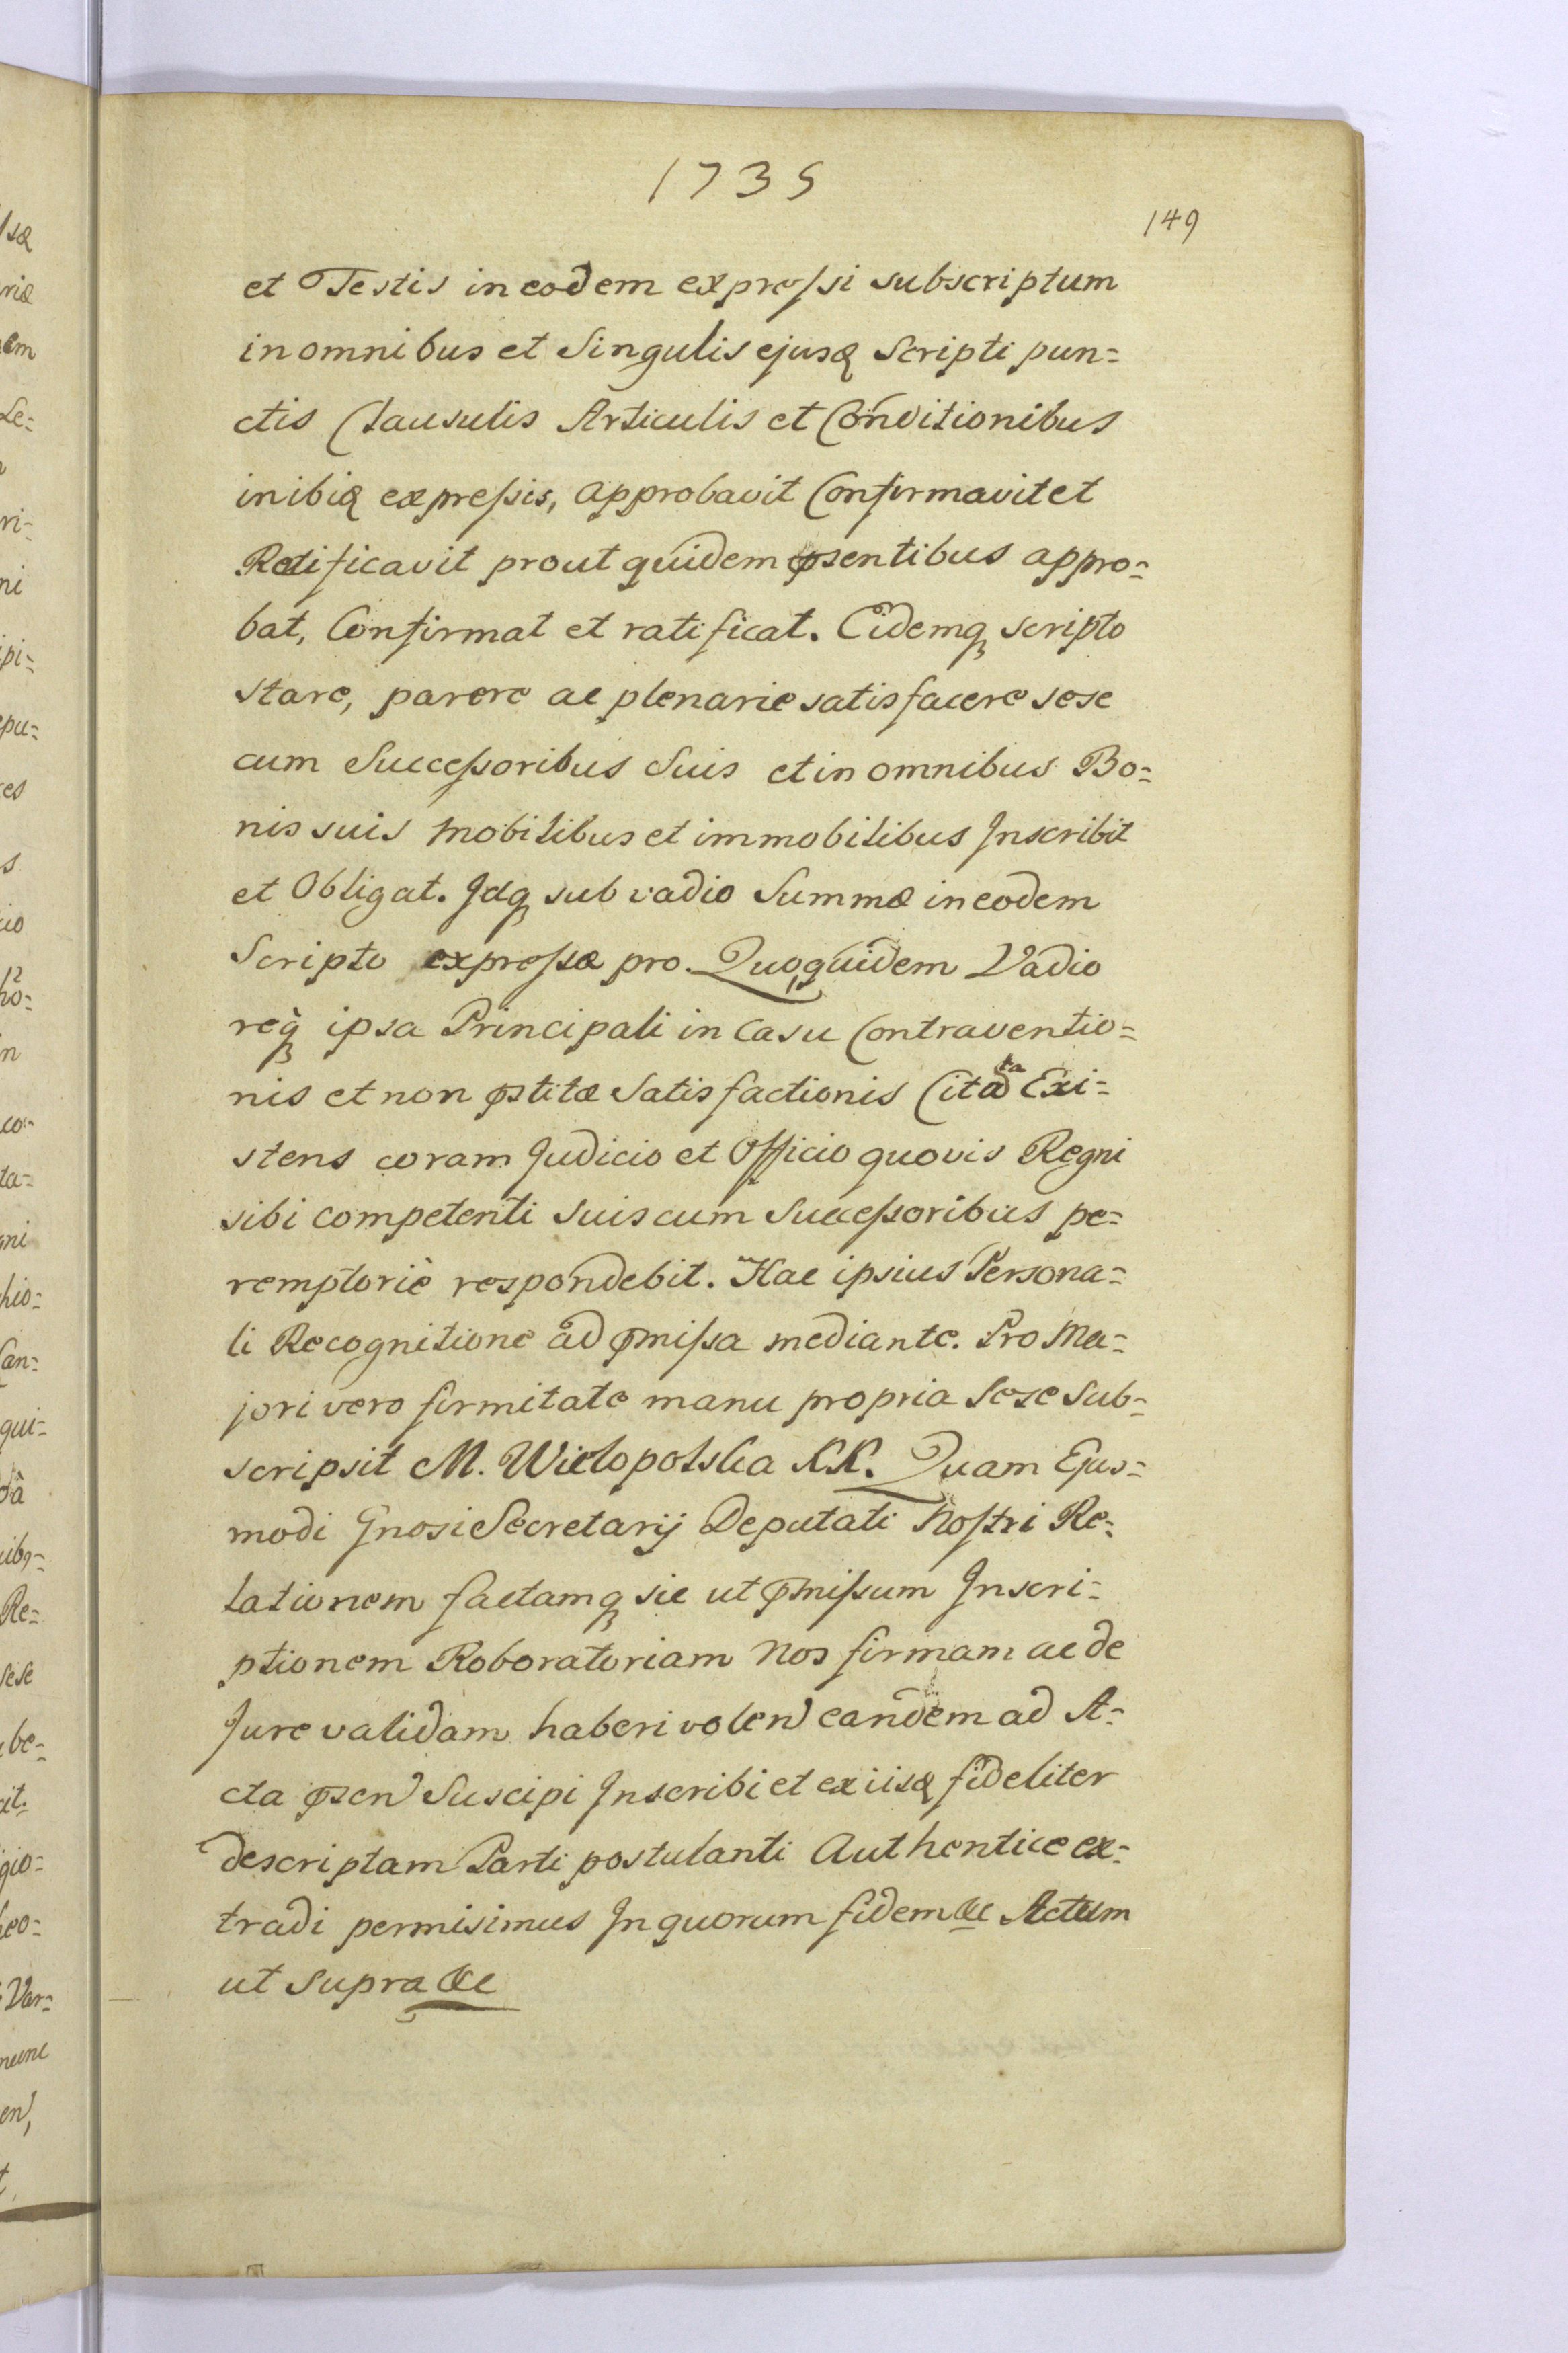 1735
149
et Testis in eodem expressi subscriptum
in omnibus et Singulis ejusq Scripti pun=
ctis Clausulis Articulis et Conditionibus
inibiq expressis, approbavit Confirmavit et
Ratificavit prout quidem pr̄sentibus appro=
bat, Confirmat et ratificat. Eidemq scripto
stare, parere ac plenarie satisfacere sese
cum Successoribus Suis et in omnibus Bo=
nis suis mobilibus et immobilibus Inscribit
et Obligat. Idq sub vadio Summæ in eodem
Scripto expressæ pro. Quo quidem Vadio
req̀ ipsa Principali in Casu Contraventio=
nis et non pr̄stitæ Satisfactionis Citata Exi=
stens coram Judicio et Officio quovis Regni
sibi competenti suis cum Successoribus pe=
remptoriè respondebit. Hac ipsius Persona=
li Recognitione ad pr̄missa mediante. Pro Ma=
jori vero firmitate manu propria Sese Sub=
scripsit M. Wielopolska KK. Quam Ejus=
modi Gnosi Secretarij Deputati Nostri Re=
lationem factamq sic ut pr̄missum Inscri=
ptionem Roboratoriam Nos firmam ac de
Jure validam haberi volen eandem ad A=
cta pr̄sen Suscipi Inscribi et ex iisq fideliter
descriptam Parti postulanti Authentice ex=
tradi permisimus In quorum fidem &c Actum
ut Supra &c